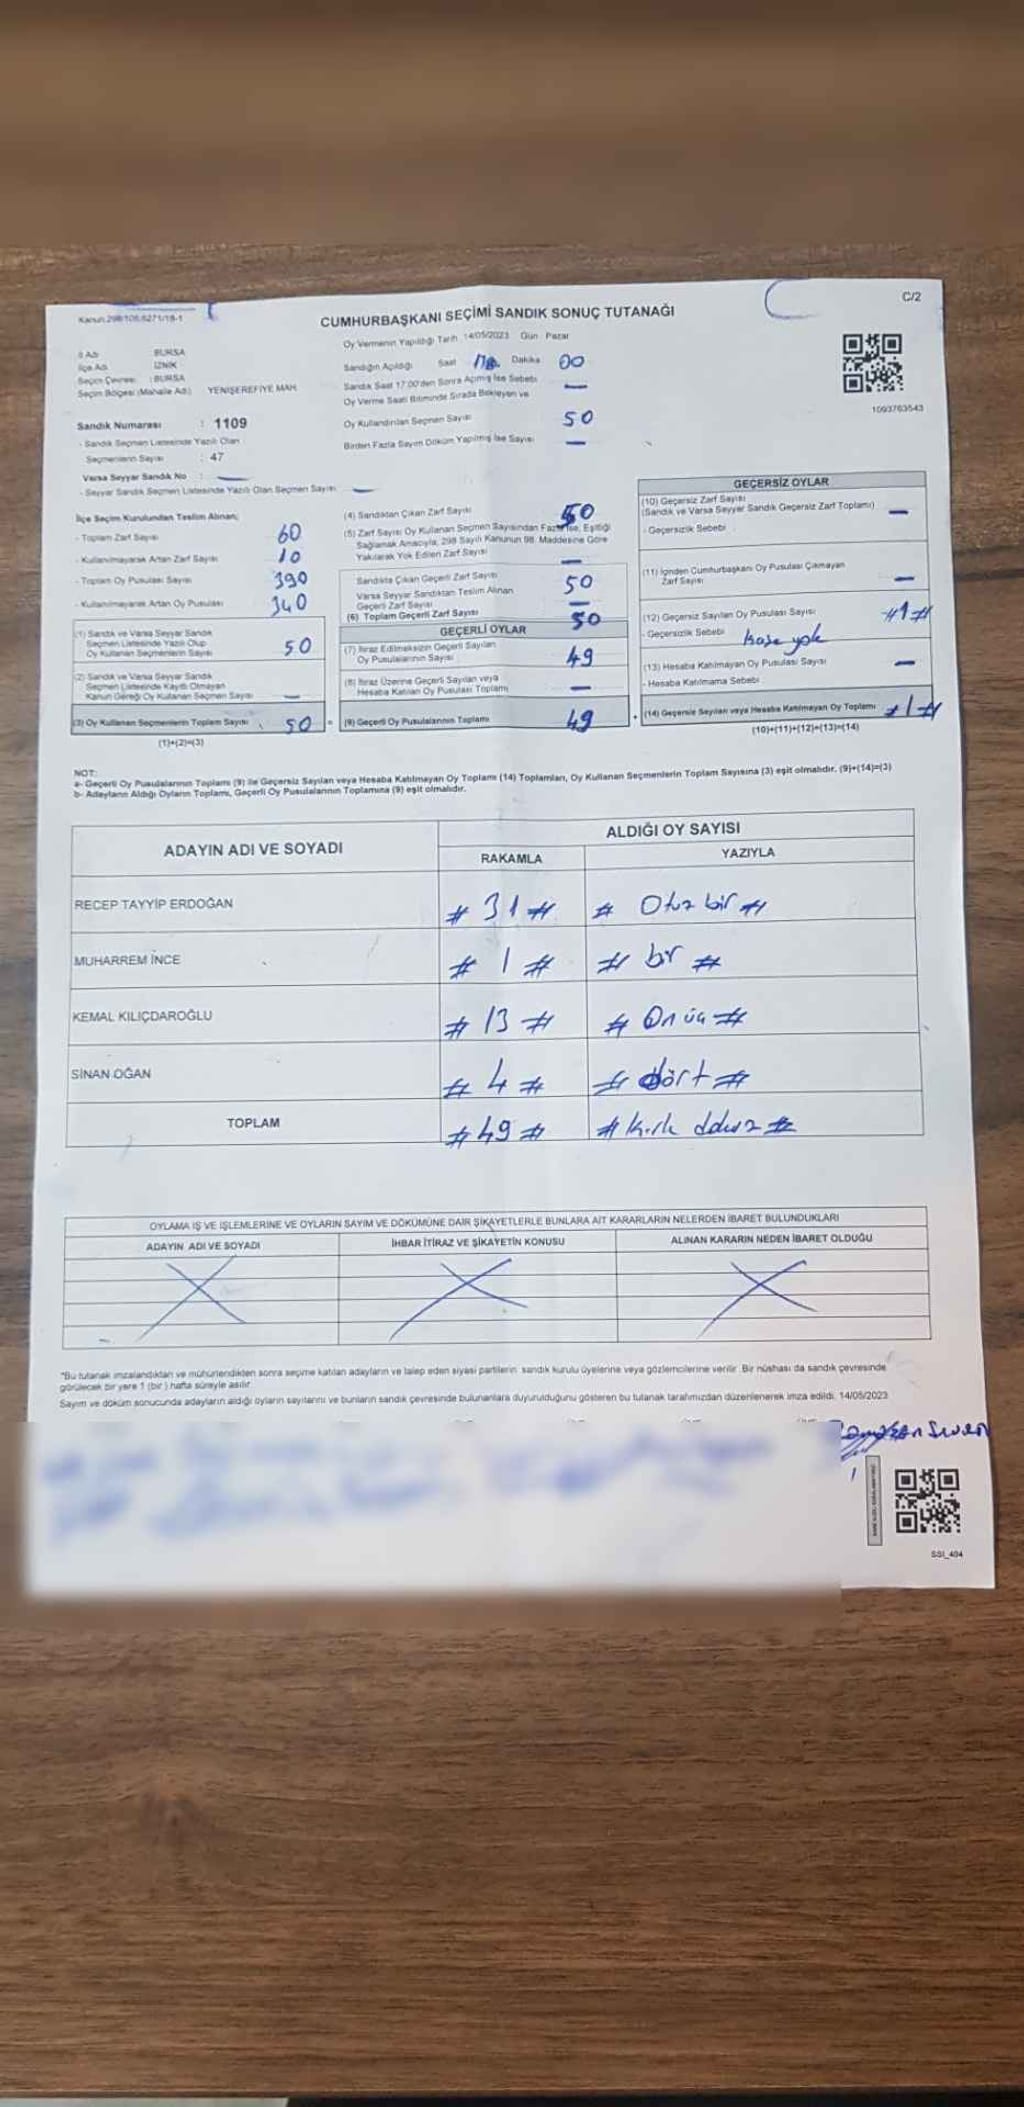 Kanun 298/105,6271/18-1
C/2
CUMHURBAŞKANI SEÇİMİ SANDIK SONUÇ TUTANAĞI
Oy Vermenin Yapıldığı Tarih :14/05/2023 Gün : Pazar
İl Adı : BURSA
İlçe Adı : İZNİK
Seçim Çevresi : BURSA
Seçim Bölgesi (Mahalle Adı) : YENİŞEREFİYE MAH.
Sandık Numarası : 1109
- Sandık Seçmen Listesinde Yazılı Olan
Seçmenlerin Sayısı : 47
Varsa Seyyar Sandık No : —
- Seyyar Sandık Seçmen Listesinde Yazılı Olan Seçmen Sayısı —
Sandığın Açıldığı Saat Dakika 00
Sandık Saat 17:00'den Sonra Açılmış İse Sebebi —
Oy Verme Saati Bitiminde Sırada Bekleyen ve
Oy Kullandırılan Seçmen Sayısı 50
Birden Fazla Sayım Döküm Yapılmış İse Sayısı —
1093763543
İlçe Seçim Kurulundan Teslim Alınan;
- Toplam Zarf Sayısı 60
- Kullanılmayarak Artan Zarf Sayısı 10
- Toplam Oy Pusulası Sayısı 390
- Kullanılmayarak Artan Oy Pusulası 340
(1) Sandık ve Varsa Seyyar Sandık
Seçmen Listesinde Yazılı Olup
Oy Kullanan Seçmenlerin Sayısı 50
(2) Sandık ve Varsa Seyyar Sandık
Seçmen Listesinde Kayıtlı Olmayan
Kanun Gereği Oy Kullanan Seçmen Sayısı —
(3) Oy Kullanan Seçmenlerin Toplam Sayısı 50 =
(1)+(2)=(3)
(4) Sandıktan Çıkan Zarf Sayısı 50
(5) Zarf Sayısı Oy Kullanan Seçmen Sayısından Fazla İse, Eşitliği
Sağlamak Amacıyla, 298 Sayılı Kanunun 98. Maddesine Göre
Yakılarak Yok Edilen Zarf Sayısı —
Sandıkta Çıkan Geçerli Zarf Sayısı 50
Varsa Seyyar Sandıktan Teslim Alınan
Geçerli Zarf Sayısı —
(6) Toplam Geçerli Zarf Sayısı 50
GEÇERLİ OYLAR
(7) İtiraz Edilmeksizin Geçerli Sayılan
Oy Pusulalarının Sayısı 49
(8) İtiraz Üzerine Geçerli Sayılan veya
Hesaba Katılan Oy Pusulası Toplamı —
(9) Geçerli Oy Pusulalarının Toplamı 49 +
GEÇERSİZ OYLAR
(10) Geçersiz Zarf Sayısı
(Sandık ve Varsa Seyyar Sandık Geçersiz Zarf Toplamı) —
- Geçersizlik Sebebi
(11) İçinden Cumhurbaşkanı Oy Pusulası Çıkmayan
Zarf Sayısı —
(12) Geçersiz Sayılan Oy Pusulası Sayısı #1#
- Geçersizlik Sebebi kaşe yok
(13) Hesaba Katılmayan Oy Pusulası Sayısı —
- Hesaba Katılmama Sebebi
(14) Geçersiz Sayılan veya Hesaba Katılmayan Oy Toplamı #1#
(10)+(11)+(12)+(13)=(14)
NOT:
a- Geçerli Oy Pusulalarının Toplamı (9) ile Geçersiz Sayılan veya Hesaba Katılmayan Oy Toplamı (14) Toplamları, Oy Kullanan Seçmenlerin Toplam Sayısına (3) eşit olmalıdır. (9)+(14)=(3)
b- Adayların Aldığı Oyların Toplamı, Geçerli Oy Pusulalarının Toplamına (9) eşit olmalıdır.
ADAYIN ADI VE SOYADI
ALDIĞI OY SAYISI
RAKAMLA YAZIYLA
RECEP TAYYİP ERDOĞAN # 31 # # Otuz bir #
MUHARREM İNCE # 1 # # bir #
KEMAL KILIÇDAROĞLU # 13 # # On üç #
SİNAN OĞAN # 4 # # dört #
TOPLAM # 49 # # kırk dokuz #
OYLAMA İŞ VE İŞLEMLERİNE VE OYLARIN SAYIM VE DÖKÜMÜNE DAİR ŞİKAYETLERLE BUNLARA AİT KARARLARIN NELERDEN İBARET BULUNDUKLARI
ADAYIN ADI VE SOYADI İHBAR İTİRAZ VE ŞİKAYETİN KONUSU ALINAN KARARIN NEDEN İBARET OLDUĞU
*Bu tutanak imzalandıktan ve mühürlendikten sonra seçime katılan adayların ve talep eden siyasi partilerin sandık kurulu üyelerine veya gözlemcilerine verilir. Bir nüshası da sandık çevresinde
görülecek bir yere 1 (bir) hafta süreyle asılır.
Sayım ve döküm sonucunda adayların aldığı oyların sayılarını ve bunların sandık çevresinde bulunanlara duyurulduğunu gösteren bu tutanak tarafımızdan düzenlenerek imza edildi. 14/05/2023
SSI_404